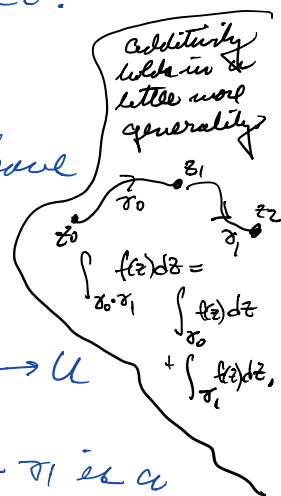 additivity
holds in a
little more
generality:
have
z₁
γ₀
z₀
γ₁
z₂
∫_{γ₀·γ₁} f(z)dz =
∫_{γ₀} f(z)dz
+ ∫_{γ₁} f(z)dz.
→ U
γ₁ is a